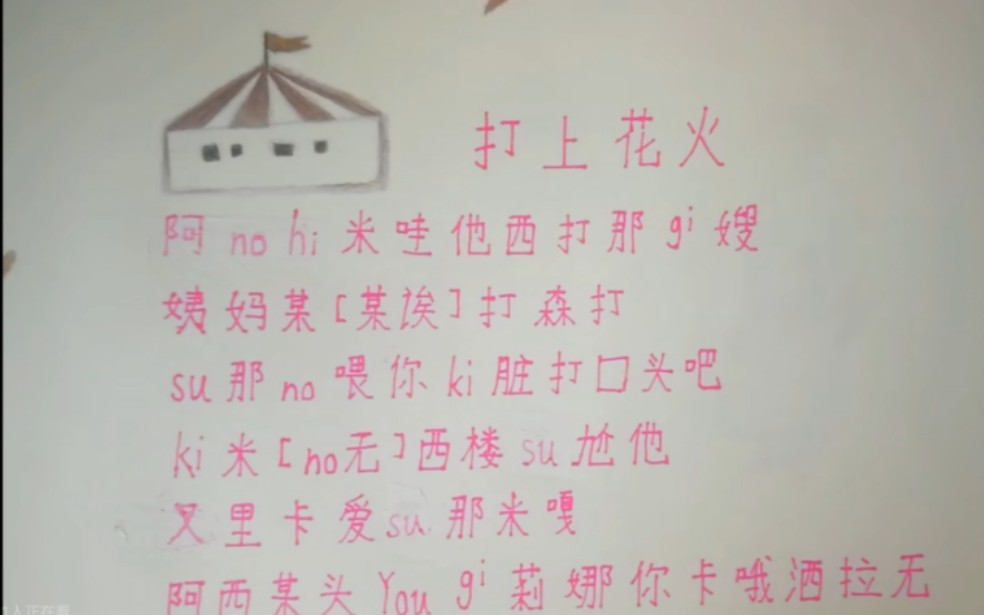 打上花火
阿 no hi 米哇他西打那 gi 嫂
姨妈某[某诶]打森打
su 那 no 喂你 ki 脏打口头吧
ki 米[no无]西楼 su 尬他
又里卡爱su 那米嘎
阿西某头 You gi 莉娜你卡哦洒拉无
1人正在看